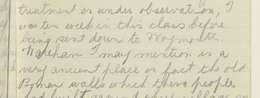 treatment or under observation, I
was ten weeks in this class before
being sent down to Weymouth.
Wareham I may mention is a
very ancient place in fact the old
Roman walls which these people